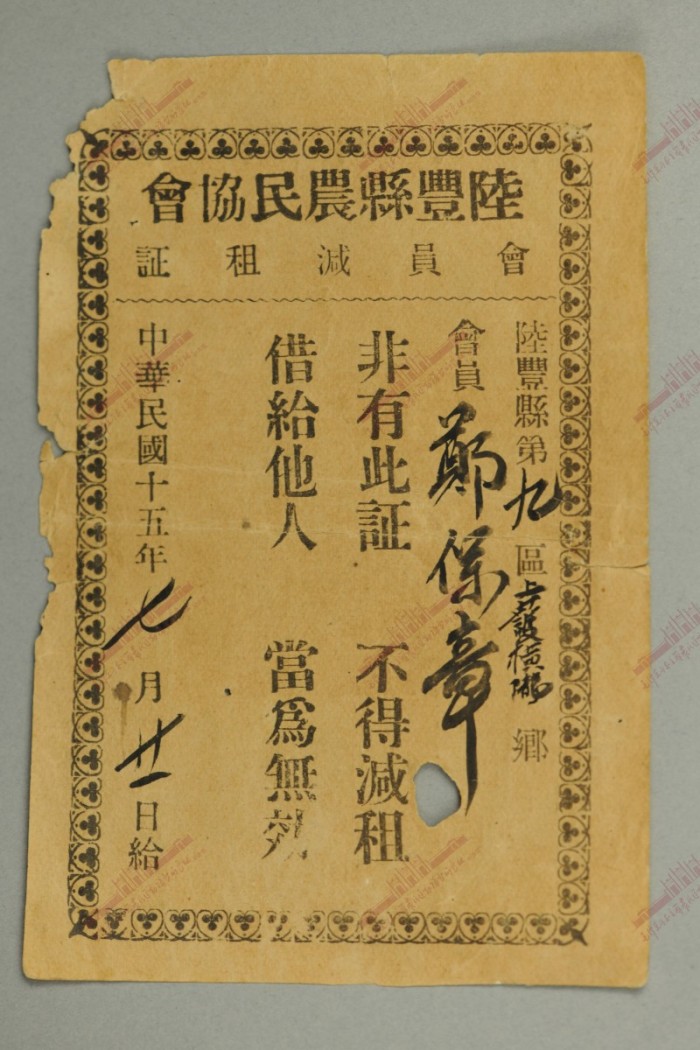 陸豐縣農民協會
會員減租証
陸豐縣第九區上護橫瓏鄉
會員鄭保章
非有此証 不得減租
借給他人 當為無效
中華民國十五年七月廿一日給